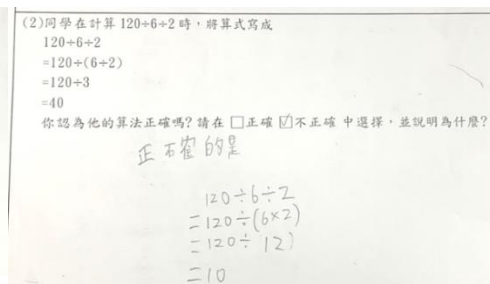 (2)同學在計算120÷6÷2時，將算式寫成
120÷6÷2
=120÷(6÷2)
=120÷3
=40
你認為他的算法正確嗎？請在 □正確 ☑不正確 中選擇，並說明為什麼？
正確的是
120÷6÷2
=120÷(6×2)
=120÷12)
=10